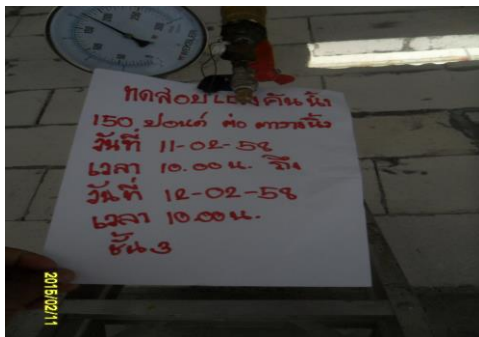 ทดสอบแรงดันน้ำ
150 ปอนด์ ต่อ ตารางนิ้ว
วันที่ 11-02-58
เวลา 10.00 น. ถึง
วันที่ 12-02-58
เวลา 10.00 น.
ชั้น 3
2015/02/11